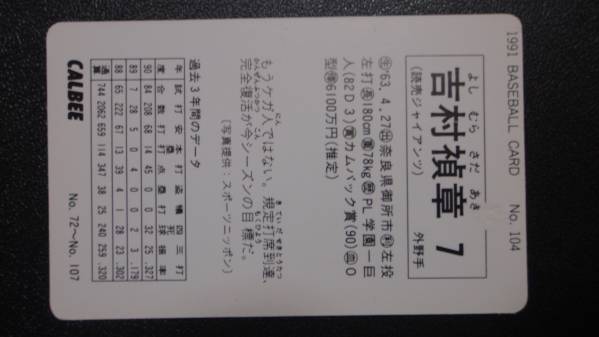 1991 BASEBALL CARD No. 104
よし むら さだ あき
吉村禎章 7
(読売ジャイアンツ) 外野手
㊌'63. 4. 27㊍奈良県御所市㊑左投
左打㊔180㎝㊕78㎏㊭PL学園―巨
人(82D3)㊤カムバック賞(90)㊥O
型㊦6100万円(推定)
もうケガ人ではない。規定打席到達、
完全復活が今シーズンの目標だ。
(写真提供:スポーツニッポン)
過去3年間のデータ
年 試 打 安 本 打 盗 犠 四 三 打
度 合 数 打 塁打 点 塁 打 死球 振 率
90 84 208 68 14 45 0 0 32 25 .327
89 7 28 5 0 4 0 0 2 3 .179
88 65 222 67 13 39 4 1 28 23 .302
通算 744 2062 659 114 347 38 25 240 259 .320
CALBEE No. 72〜No. 107